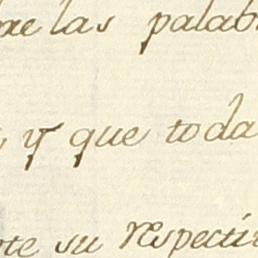 las palab
y que toda
te su respecti